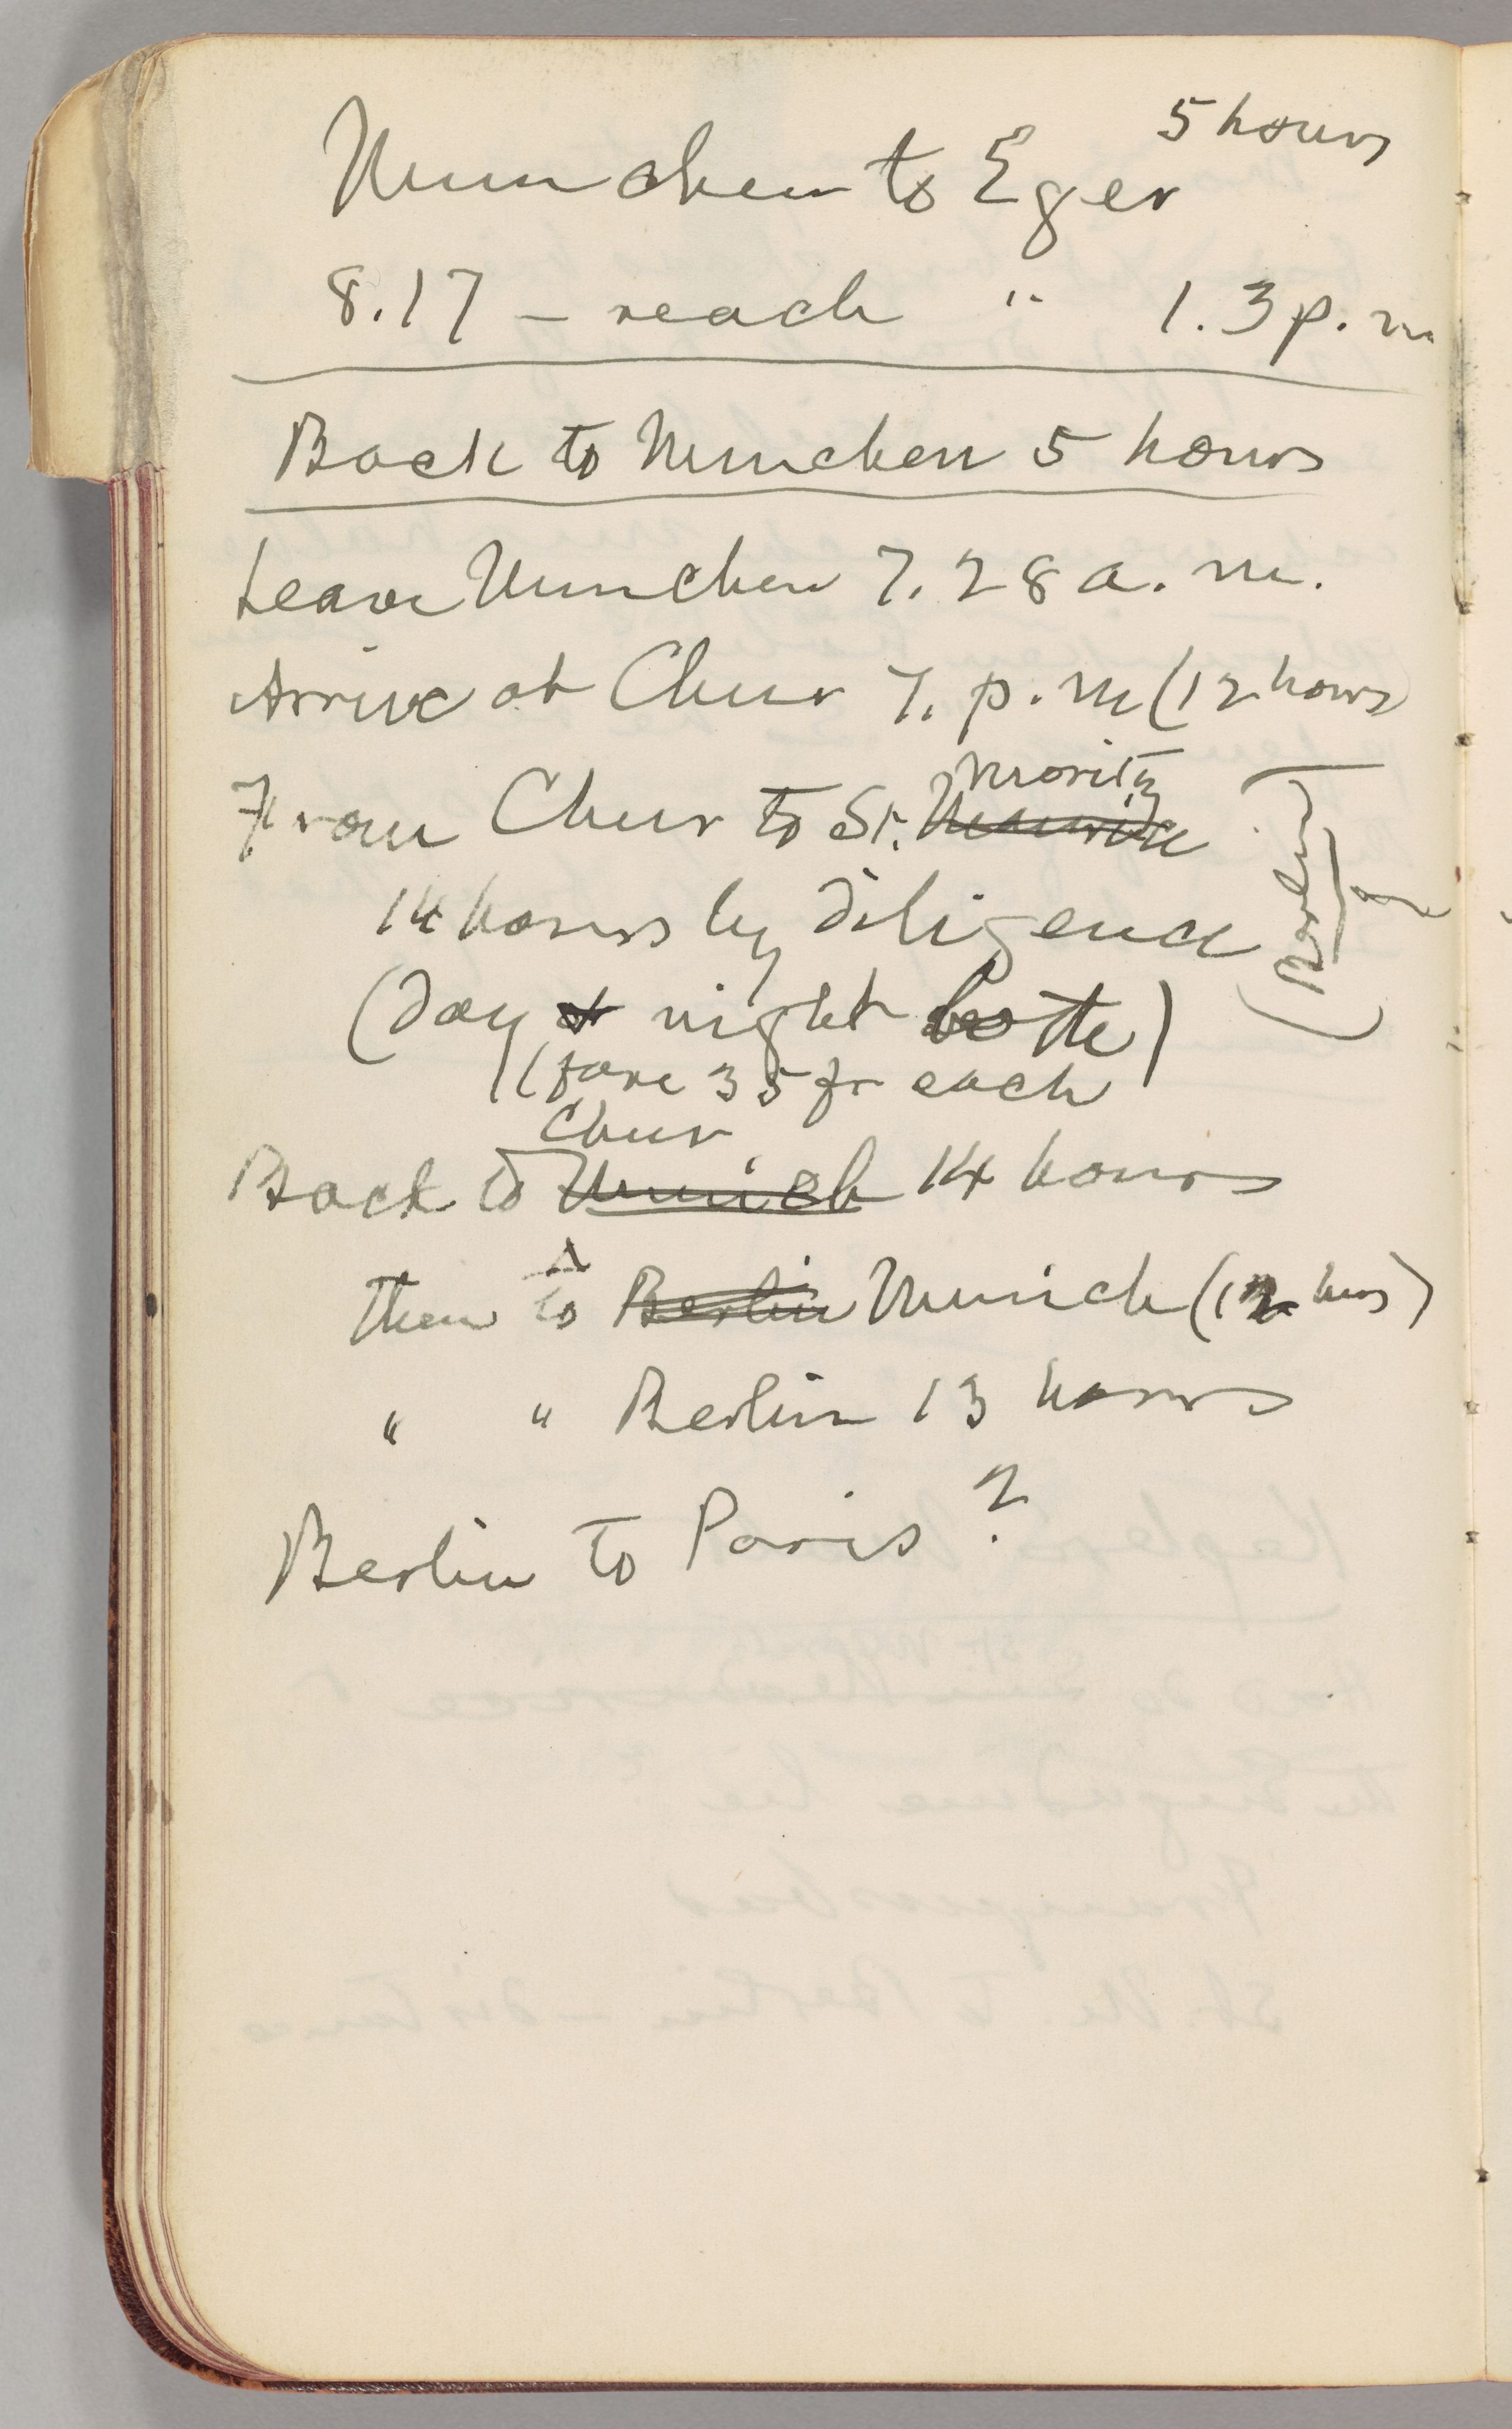 5 hours
Munchen to Eger
8.17 – reach " 1.3 p. m
Back to Munchen 5 hours
Leave Munchen 7.28 a. m.
Arrive at Chur 7. p. m (12 hours)
Moritz
From Chur to St. Maurice
14 hours by diligence
(day & night both)
(fare 35 fr each
Chur
Back to Munich 14 hours
then to Berlin Munich (12 hrs)
" " Berlin 13 hours
Berlin to Paris ?